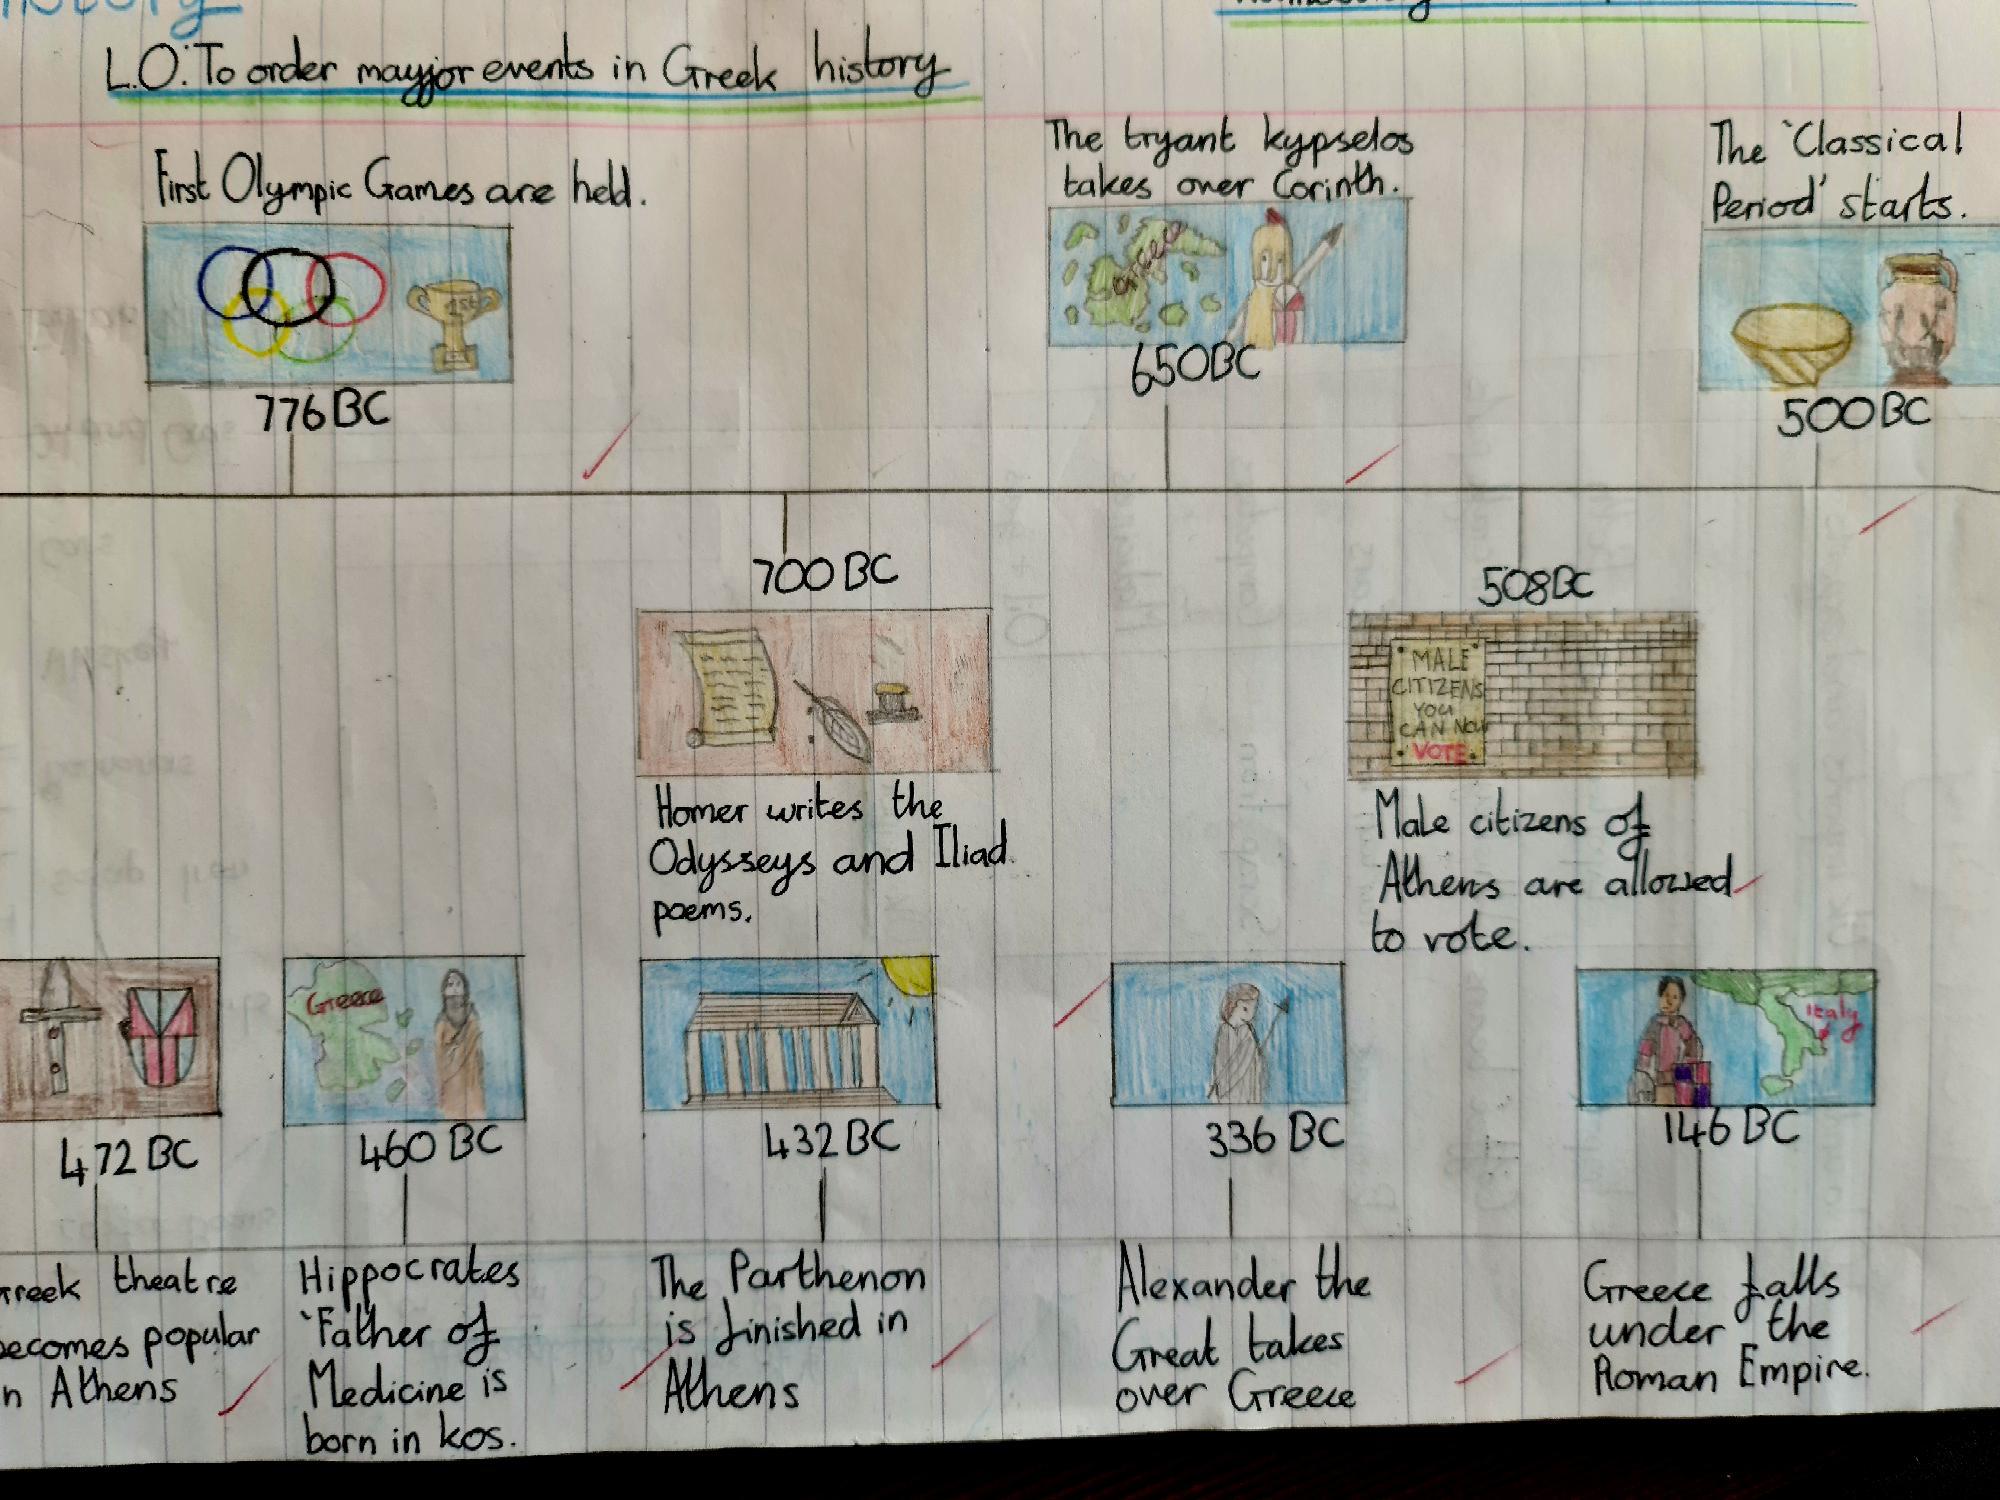 L.O: To order mayjor events in Greek history
First Olympic Games are held.
1st
776 BC
The tryant kypselos
takes over Corinth.
Greece
650BC
The 'Classical
Period' starts.
500BC
700 BC
Homer writes the
Odysseys and Iliad
poems.
508BC
MALE
CITIZENS
YOU
CAN NOW
VOTE.
Male citizens of
Athens are allowed
to vote.
472 BC
theatre
popular
Athens
Greece
460 BC
Hippocrates
'Father of
Medicine is
born in kos.
432 BC
The Parthenon
is finished in
Athens
336 BC
Alexander the
Great takes
over Greece
italy
146 BC
Greece falls
under the
Roman Empire.